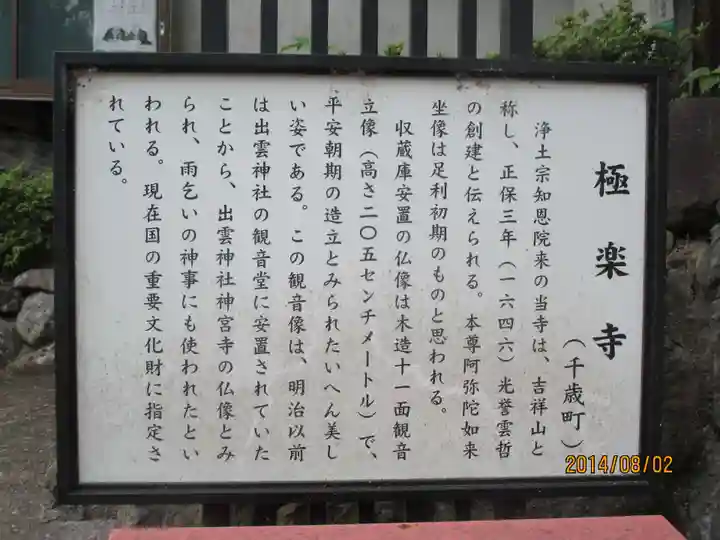 極楽寺
(千歳町)
浄土宗知恩院来の当寺は、吉祥山と
称し、正保三年(一六四六)光誉雲哲
の創建と伝えられる。本尊阿弥陀如来
坐像は足利初期のものと思われる。
収蔵庫安置の仏像は木造十一面観音
立像(高さ二〇五センチメートル)で、
平安朝期の造立とみられたいへん美し
い姿である。この観音像は、明治以前
は出雲神社の観音堂に安置されていた
ことから、出雲神社神宮寺の仏像とみ
られ、雨乞いの神事にも使われたとい
われる。現在国の重要文化財に指定さ
れている。
2014/08/02